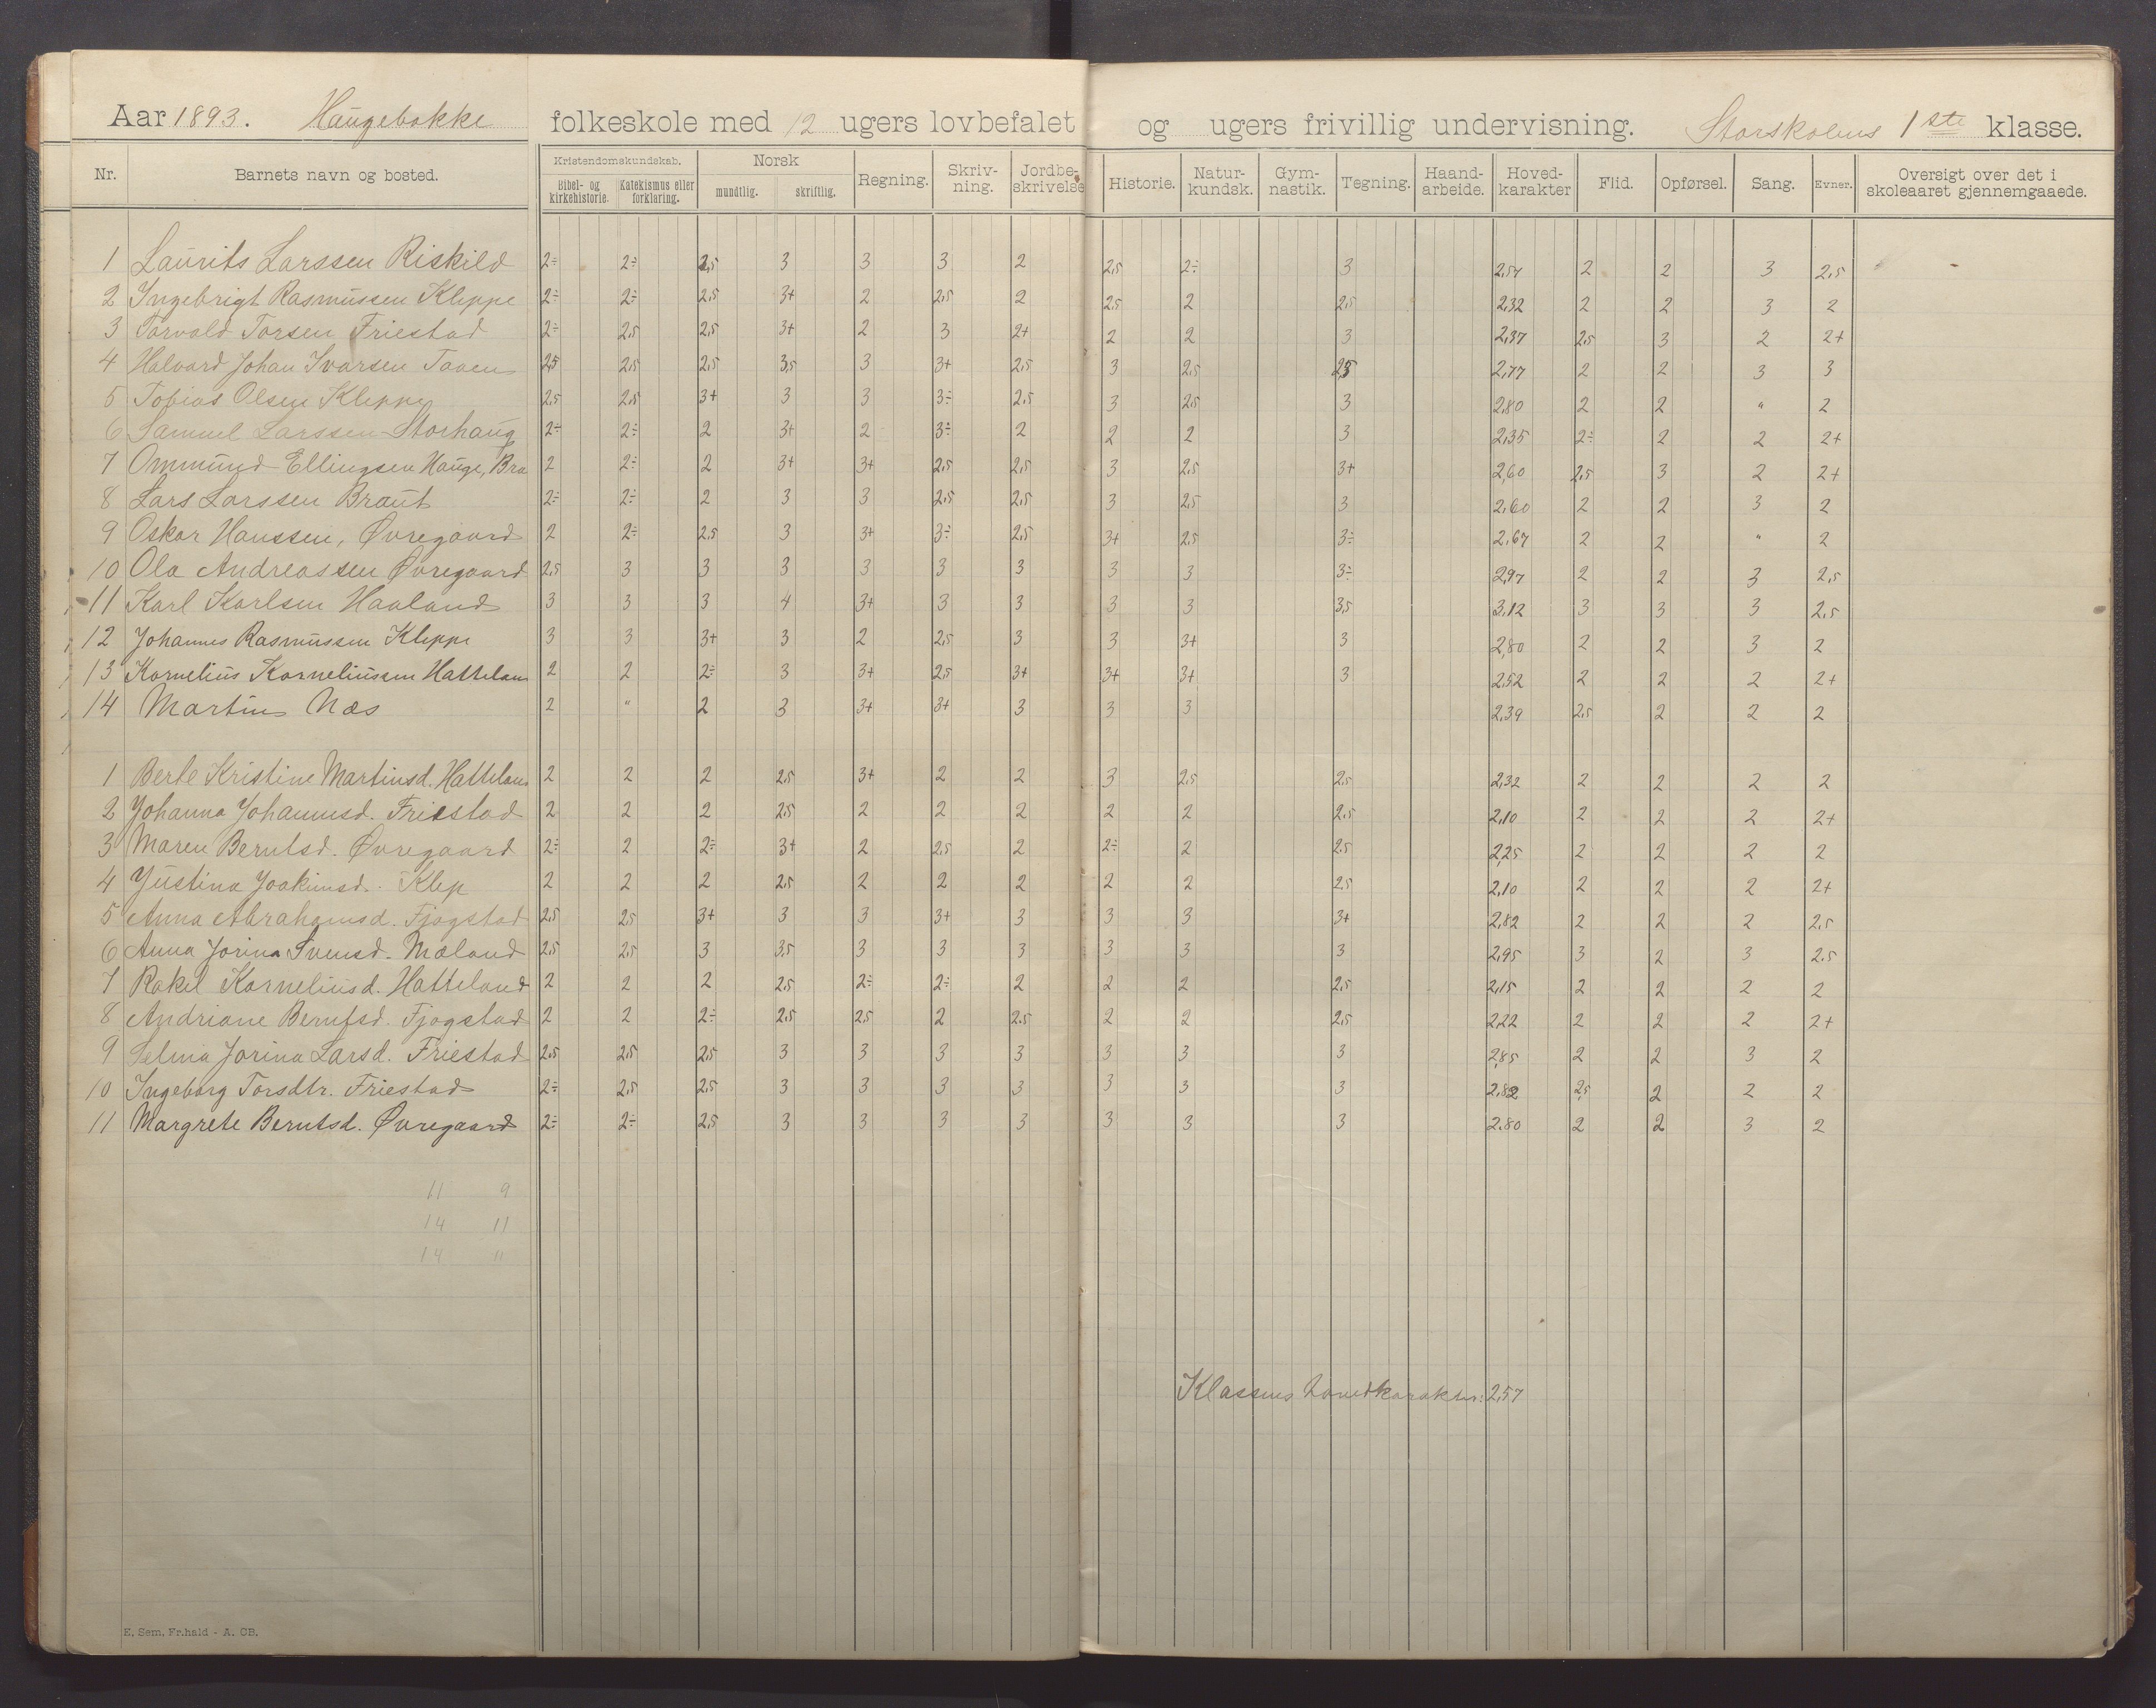 Aar 1893. Haugebakke folkeskole med 12 ugers lovbefalet og ugers frivillig undervisning. Storskolens 1ste klasse.
Nr. Barnets navn og bosted. Kristendomskundskab. Bibel- og kirkehistorie. Katekismus eller forklaring. Norsk mundtlig. skriftlig. Regning. Skriv-ning. Jordbe-skrivelse Historie. Natur-kundsk. Gym-nastik. Tegning. Haand-arbeide. Hoved-karakter Flid. Opførsel. Sang. Evner. Oversigt over det i skoleaaret gjennemgaaede.
1 Laurits Larssen Riskild 2÷ 2÷ 2,5 3 3 3 2 2,5 2÷ 3 2,57 2 2 3 2,5
2 Ingebrigt Rasmussen Kleppe 2÷ 2÷ 2,5 3+ 2 2,5 2 2,5 2 2,5 2,32 2 2 3 2
3 Torvald Torsen Friestad 2÷ 2,5 2,5 3+ 2 3 2+ 2 2 3 2,37 2,5 3 2 2+
4 Halvard Johan Ivarsen Taaen 2,5 2,5 2,5 3,5 3 3+ 2,5 3 2,5 2,5 2,77 2 2 3 3
5 Tobias Olsen Kleppe 2,5 2,5 3+ 3 3 3÷ 2,5 3 2,5 3 2,80 2 2 " 2
6 Samuel Larssen Storhaug 2÷ 2÷ 2 3+ 2 3÷ 2 2 2 3 2,35 2÷ 2 2 2+
7 Ommund Ellingsen Hauge, Bra 2 2÷ 2 3+ 3+ 2,5 2,5 3 2,5 3+ 2,60 2,5 3 2 2+
8 Lars Larssen Braut 2÷ 2÷ 2 3 3 2,5 2,5 3 2,5 3 2,60 2 2 3 2
9 Oskar Hanssen, Øvregaard 2 2÷ 2,5 3 3+ 3÷ 2,5 3+ 2,5 3÷ 2,67 2 2 " 2
10 Ola Andreassen Øvregaard 2,5 3 3 3 3 3 3 3 3 3÷ 2,97 2 2 3 2,5
11 Karl Karlsen Haaland 3 3 3 4 3+ 3 3 3 3 3,5 3,12 3 3 3 2,5
12 Johannes Rasmussen Kleppe 3 3 3+ 3 2 2,5 3 3 3+ 3 2,80 2 2 3 2
13 Kornelius Korneliussen Hattelan 2 2 2÷ 3 3+ 2,5 3+ 3+ 3+ 3 2,52 2 2 2 2+
14 Martius Næs 2 " 2 3 3+ 3+ 3 3 3 2,39 2,5 2 2 2
1 Berte Kristine Martinsd. Hattelan 2 2 2 2,5 3+ 2 2 3 2,5 2,5 2,32 2 2 2 2
2 Johanna Johannesd. Friestad 2 2 2 2,5 2 2 2 2 2 2,5 2,10 2 2 2 2+
3 Maren Berntsd. Øvregaard 2÷ 2 2÷ 3+ 2 2,5 2 2÷ 2 2,5 2,25 2 2 2 2
4 Justina Joakimsd. Klep 2 2 2 2,5 2 2 2 2 2 2,5 2,10 2 2 2 2+
5 Anna Abrahamsd. Fjogstad 2,5 2,5 3+ 3 3 3+ 3 3 3 3+ 2,82 2 2 2 2,5
6 Anna Jorina Svensd. Mæland 2,5 2,5 3 3,5 3 3 3 3 3 3 2,95 3 2 3 2,5
7 Rakel Korneliusd. Hatteland 2 2 2 2,5 2÷ 2÷ 2 2 2 2,5 2,15 2 2 2 2
8 Andriane Berntsd. Fjogstad 2 2 2÷ 2,5 2,5 2 2,5 2 2 2,5 2,22 2 2 2 2+
9 Selma Jorina Larsd. Friestad 2,5 2,5 2,5 3 3 3 3 3 3 3 2,85 2 2 3 2
10 Ingeborg Torsdtr. Friestad 2÷ 2,5 2,5 3 3 3 3 3 3 3 2,82 2,5 2 2 2
11 Margrete Berntsd. Øvregaard 2÷ 2÷ 2,5 3 3 3 3 3 3 3 2,80 2 2 3 2
11 9
14 11
14 11
Klassens hovedkarakter: 2,57
E. Sem, Fr.hald - A. CB.